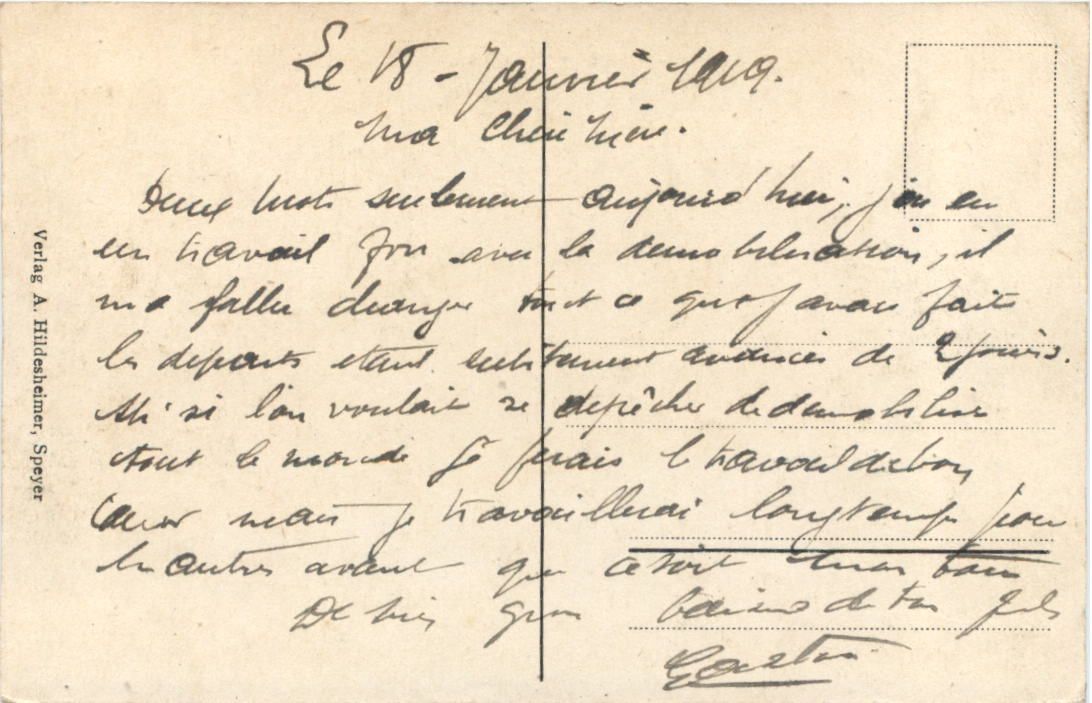 Le 18 - Janvier 1919.
Ma Chère Mère.
Deux mots seulement aujourd'hui, j'ai eu
un travail fou avec la démobilisation, il
m'a fallu changer tout ce que j'avais fait
les départs étant subitement avancés de 2 jours.
Ah! si l'on voulait se dépêcher de démobiliser
tout le monde je ferais le travail de bon
cœur mais je travaillerai longtemps pour
les autres avant que ce soit mon tour
De bien gros baisers de ton fils
Gaston
Verlag A. Hildesheimer, Speyer